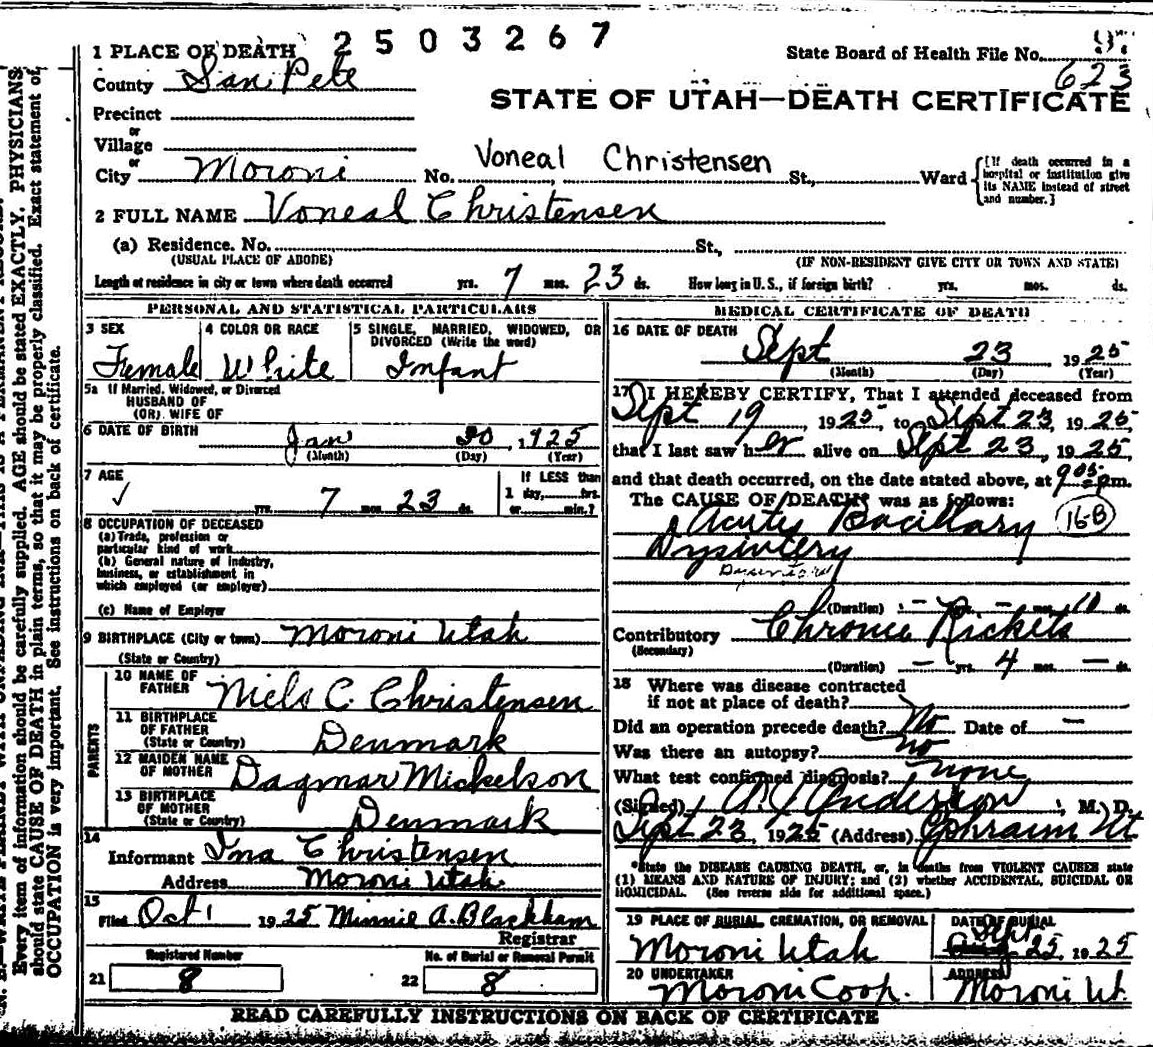 2503267
1 PLACE OF DEATH
State Board of Health File No.
County San Pete
623
STATE OF UTAH—DEATH CERTIFICATE
Precinct
or
Village
or
City Moroni No. Voneal Christensen St., Ward
{[If death occurred in a hospital or institution give its NAME instead of street and number.]
2 FULL NAME Voneal Christensen
(a) Residence. No. St.,
(USUAL PLACE OF ABODE) (IF NON-RESIDENT GIVE CITY OR TOWN AND STATE)
Length of residence in city or town where death occurred yrs. 7 mos. 23 ds. How long in U.S., if foreign birth? yrs. mos. ds.
PERSONAL AND STATISTICAL PARTICULARS
3 SEX 4 COLOR OR RACE 5 SINGLE, MARRIED, WIDOWED, OR
DIVORCED (Write the word)
Female White Infant
5a If Married, Widowed, or Divorced
HUSBAND OF
(OR) WIFE OF
6 DATE OF BIRTH Jan 30, 1925
(Month) (Day) (Year)
7 AGE If LESS than
1 day, hrs.
✓ yrs. 7 mos. 23 ds. or min.?
8 OCCUPATION OF DECEASED
(a) Trade, profession or
particular kind of work
(b) General nature of industry,
business, or establishment in
which employed (or employer)
(c) Name of Employer
9 BIRTHPLACE (City or town) Moroni Utah
(State or Country)
PARENTS
10 NAME OF
FATHER Niels C. Christensen
11 BIRTHPLACE
OF FATHER
(State or Country) Denmark
12 MAIDEN NAME
OF MOTHER Dagmar Mickelson
13 BIRTHPLACE
OF MOTHER
(State or Country) Denmark
14
Informant Ina Christensen
Address Moroni Utah
15
Filed Oct 1 1925 Minnie A. Blackham
Registrar
Registered Number No. of Burial or Removal Permit
21 8 22 8
MEDICAL CERTIFICATE OF DEATH
16 DATE OF DEATH
Sept 23, 1925
(Month) (Day) (Year)
17 I HEREBY CERTIFY, That I attended deceased from
Sept 19, 1925, to Sept 23, 1925,
that I last saw her alive on Sept 23, 1925,
and that death occurred, on the date stated above, at 9 05 pm.
The CAUSE OF DEATH* was as follows:
Acute Bacillary 16-B
Dysintery
(Duration) - yrs. - mos. 10 ds.
Contributory Chronic Rickets
(Secondary)
(Duration) - yrs. 4 mos. - ds.
18 Where was disease contracted
if not at place of death?
Did an operation precede death? No Date of -
Was there an autopsy? no
What test confirmed diagnosis? none
(Signed) A. J. Anderson, M. D.
Sept 23, 1925 (Address) Ephraim Ut
*State the DISEASE CAUSING DEATH, or, in deaths from VIOLENT CAUSES state
(1) MEANS AND NATURE OF INJURY; and (2) whether ACCIDENTAL, SUICIDAL OR
HOMICIDAL. (See reverse side for additional space.)
19 PLACE OF BURIAL, CREMATION, OR REMOVAL DATE OF BURIAL
Moroni Utah Sept 25, 1925
20 UNDERTAKER ADDRESS
Moroni Coop. Moroni Ut.
READ CAREFULLY INSTRUCTIONS ON BACK OF CERTIFICATE
Every item of information should be carefully supplied. AGE should be stated EXACTLY. PHYSICIANS
should state CAUSE OF DEATH in plain terms, so that it may be properly classified. Exact statement of
OCCUPATION is very important. See instructions on back of certificate.